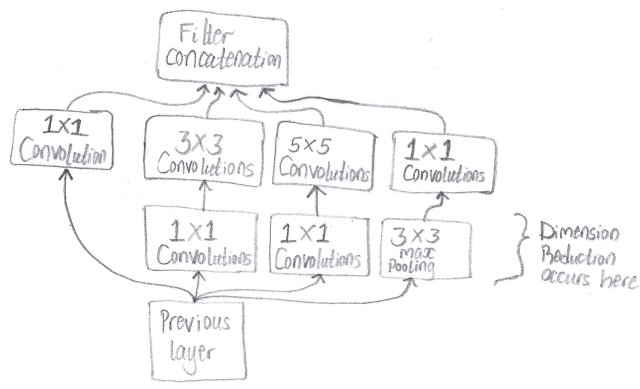 Filter
concatenation
1X1
Convolution
3X3
Convolutions
5X5
Convolutions
1X1
Convolutions
1X1
Convolutions
1X1
Convolutions
3X3
max
Pooling
Dimension
Reduction
occurs here
Previous
layer